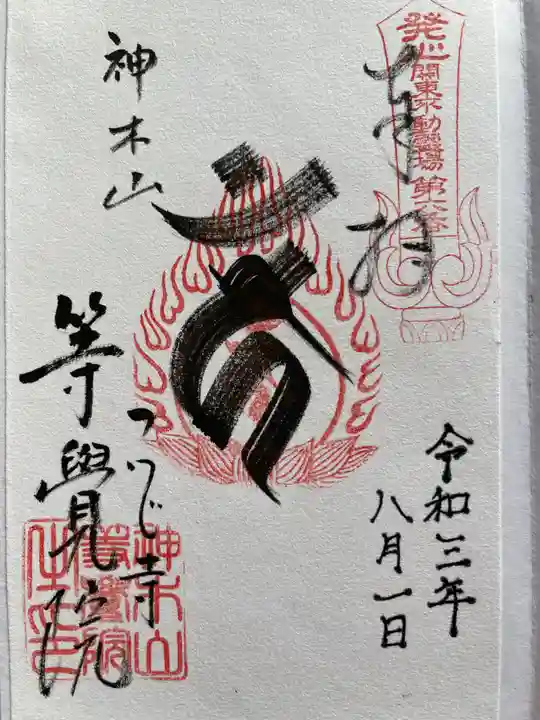 発心 関東不動霊場 第六番
奉拝
令和三年
八月一日
神木山
つつじ寺
等覺院
神木山
等覺院